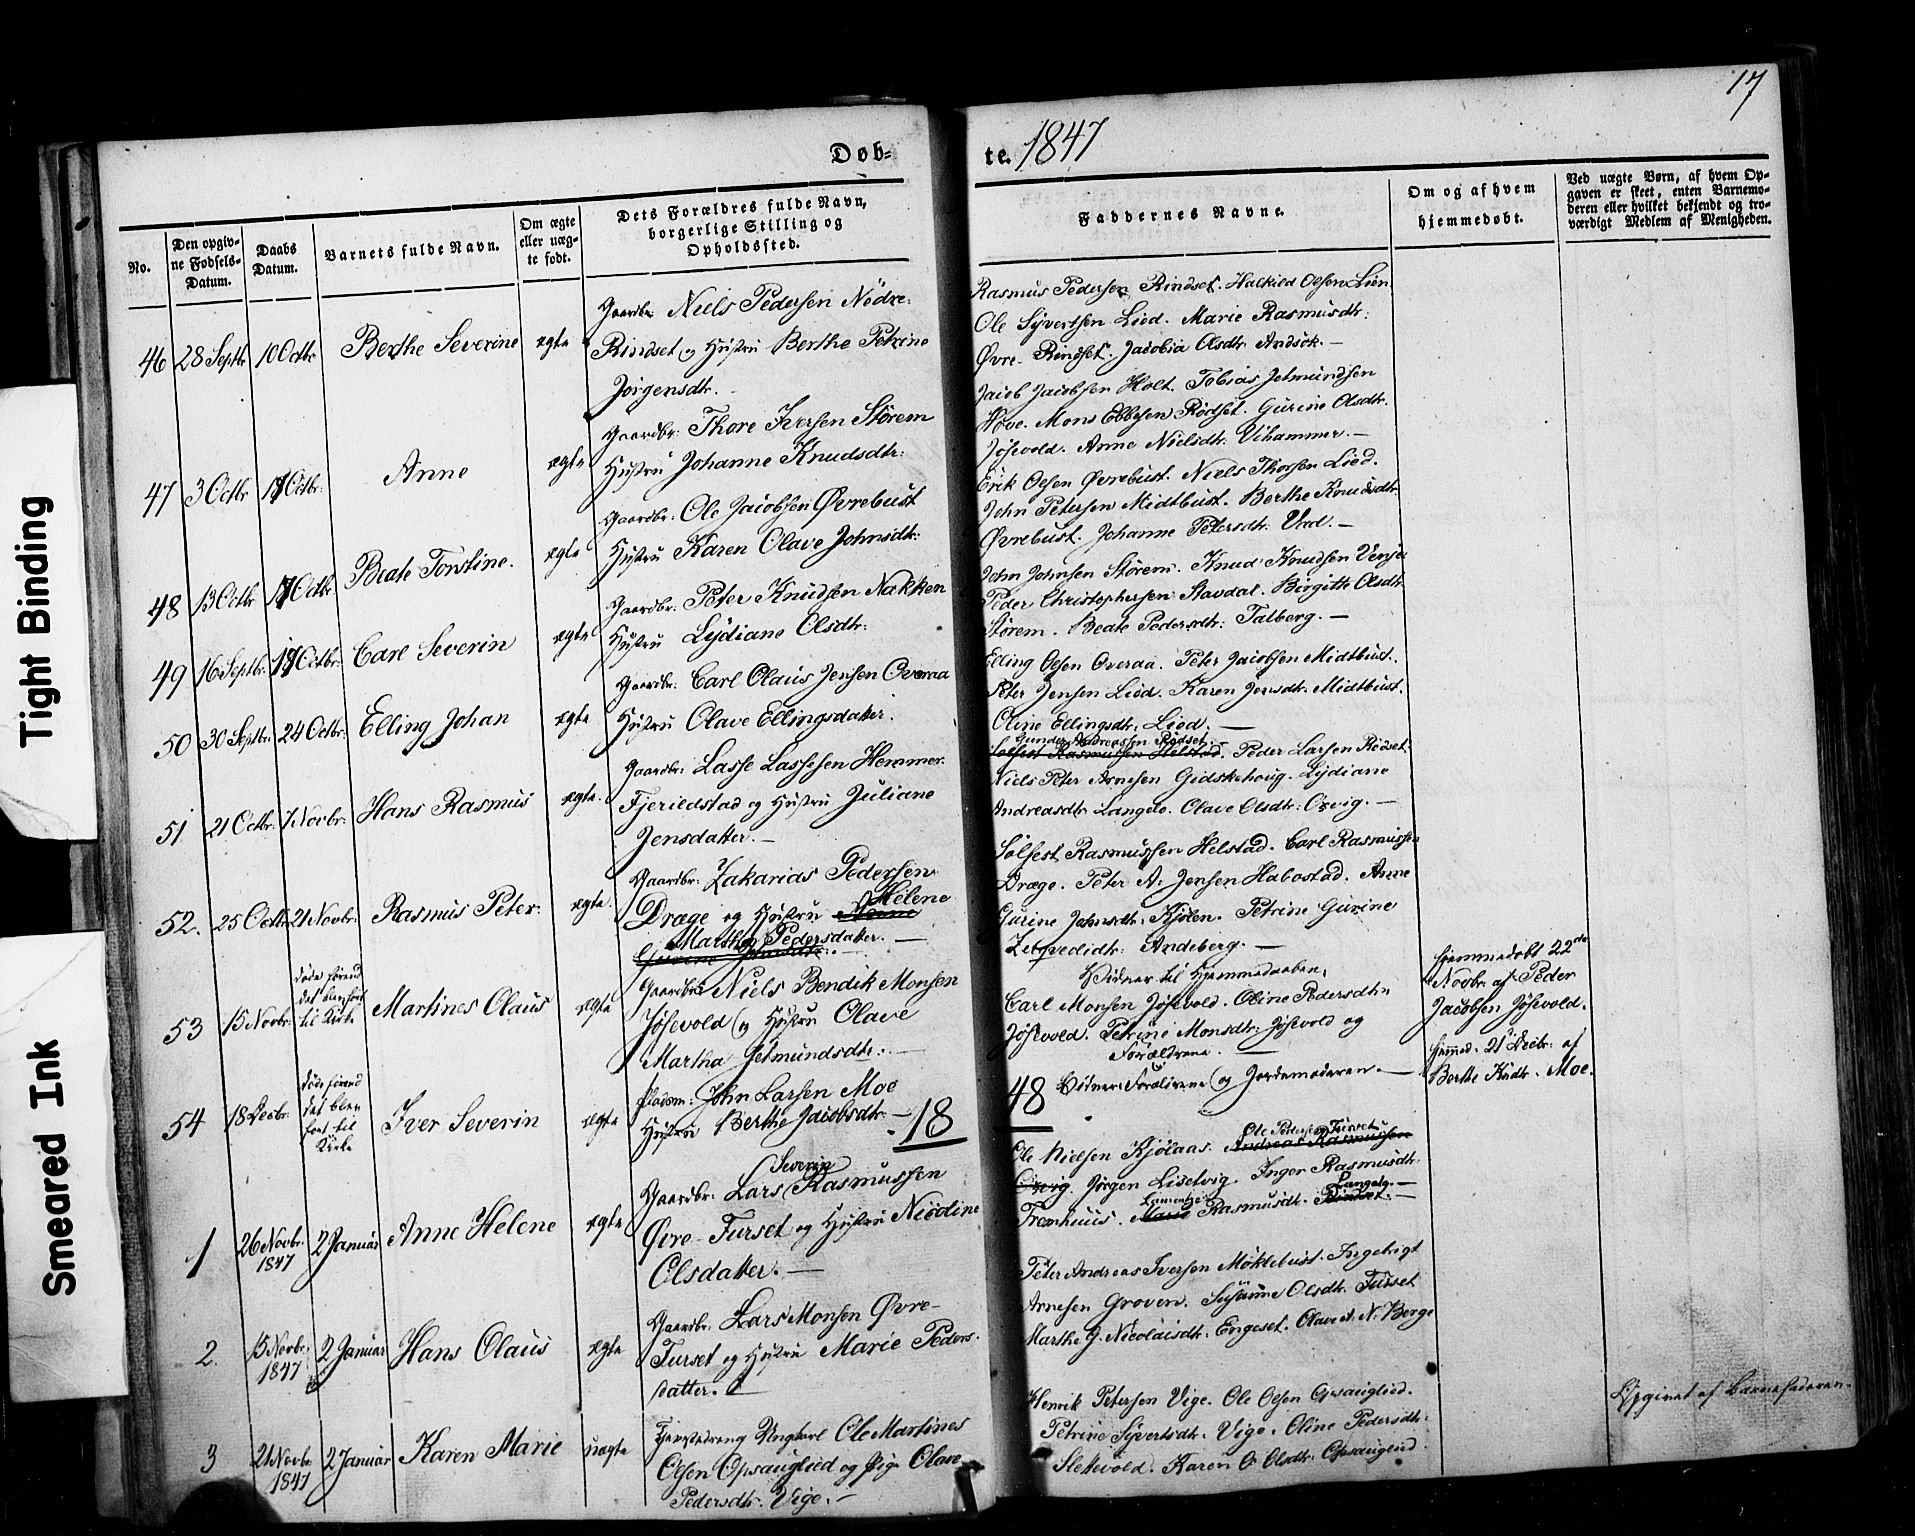 17
Døb-
te. 1847
No.
Den opgiv-
ne Fødsels-
Datum.
Daabs
Datum.
Barnets fulde Navn.
Om ægte
eller uæg-
te født.
Dets Forældres fulde Navn,
borgerlige Stilling og
Opholdssted.
Faddernes Navne.
Om og af hvem
hjemmedøbt.
Ved uægte Børn, af hvem Op-
gaven er skeet, enten Barnemo-
deren eller hvilket bekjendt og tro-
værdigt Medlem af Menigheden.
46 28 Septbr 10 Octbr Berthe Severine ægte
Gaardbr: Niels Pedersen Nedre-
Rindset og Hustru Berthe Petrine
Jørgensdtr.
Rasmus Pedersen Rindset. Halkild Olsen Lien
Ole Syvertsen Lied. Marie Rasmusdtr:
Øvre-Rindset. Jacobia Olsdtr. Andsok.—
47 3 Octbr 17 Octbr: Anne ægte
Gaardbr: Thore Iversen Störem
Hustru Johanne Knudsdtr:
Jacob Jacobsen Holt. Tobias Jetmundsen
Hove. Mons Ebbesen Rødset. Gurine Olsdtr.
Jøsevold. Anne Nielsdtr. Vihammer.—
48 13 Octbr 17 Octbr Beate Torstine. ægte
Gaardbr: Ole Jacobsen Øvrebust
Hustru Karen Olave Johnsdtr:
Erik Olsen Øvrebust. Niels Thorsen Lied.
John Petersen Midtbust. Berthe Knudsdtr
Øvrebust. Johanne Petersdtr.
49 16 Septbr: 17 Octbr: Carl Severin ægte
Gaardbr: Peter Knudsen Nakken
Hustru Lydiane Olsdtr:
John Johnsen Störem. Knud Knudsen
Peder Christophersen Stavdal. Birgitte Olsdtr.
Störem. Beate Pedersdtr: Talberg.—
50 30 Septbr: 24 Octbr: Elling Johan ægte
Gaardbr: Carl Olaus Jensen Overaa
Hustru Olave Ellingsdatter.
Elling Olsen Overaa. Peter Jacobsen Midtbust.
Peter Jensen Lied. Karen Jensdtr. Midtbust.
Oline Ellingsdtr. Lied.—
51 21 Octbr. 7 Novbr: Hans Rasmus ægte.
Gaardbr: Lasse Lassesen Hammer-
Fjerledstad og Hustru Juliane
Jensdatter.—
Gunder Andreassen Rødset.
Solfest Rasmussen Helstad. Peder Larsen Rødset.
Niels Peter Arnesen Gidskehoug. Lydiane
Andreasdtr Langelo. Olave Olsdtr: Orvig.—
52. 25 Octbr 21 Novbr: Rasmus Peter. ægte.
Gaardbr: Zakarias Pedersen
Helene
Drage og Hustru Anne
Martha Pedersdatter.—
Gurine Johnsdtr:
Solfest Rasmussen Helstad. Carl Rasmussen
Drage. Peter A. Jensen Habostad. Anne
Gurine Johnsdtr. Kjølen. Petrine Gurine
Andeberg.—
53 15 Novbr. døde førend
det blev ført
til Kirke
Martines Olaus ægte
Gaardbr: Niels Bendik Monsen
Jøsevold og Hustru Olave
Martha Jetmundsdtr:—
Vidner til Hjemmedaaben.
Carl Monsen Jøsevold. Oline Pedersdtr.
Jøsevold. Petrine Monsdtr: Jøsevold og
Forældrene.—
Hjemmedøbt 22de
Novbr. af Peder
Jacobsen Jøsevold.
54 18 Decbr: døde førend
det blev
ført til
Kirke
Iver Severin ægte
Pladsm: John Larsen Moe
Hustru Berthe Jacobsdtr.— 18
48 Vidner: Forældrene og Jordemoderen.—
Hjemmed. 21 Decbr: af
Berthe Kndtr. Moe.
1 26 Novbr. 2 Januar Anne Helene ægte
1847
Severin
Gaardbr: Lars Rasmussen
Øvre-Furset og Hustru Nicoline
Olsdatter.—
Ole Pedersen Furset
Ole Nielsen Kjølaas. Andreas Rasmussen
Orvig. Jørgen Liselvig. Inger Rasmusdtr.
Langelo.—
Fremhuus. Marie Rasmusdtr. Rindset.—
2. 13 Novbr. 2 Januar Hans Olaus ægte
1847
Gaardbr: Lars Monsen Øvre-
Furset og Hustru Marie Peders-
datter.—
Peter Andreas Iversen Møklebust. Ingebrigt
Arnesen Groven. Susanne Olsdtr. Furset
Marthe G. Nicolaisdtr. Engeset. Olave N. N. Berge
3 21 Novbr 2 Januar Karen Marie uægte
1847
Ungkarl Ole Martines
Olsen Opsauglied og Pige Olave
Pedersdtr. Vige.—
Henrik Petersen Vige. Ole Olsen Opsauglied.
Petrine Syvertsdtr. Vige. Oline Pedersdtr.
Slettevold. Karen O. Olsdtr: Opsauglied.
Opgivet af Barnefaderen.
Tight Binding
Smeared Ink